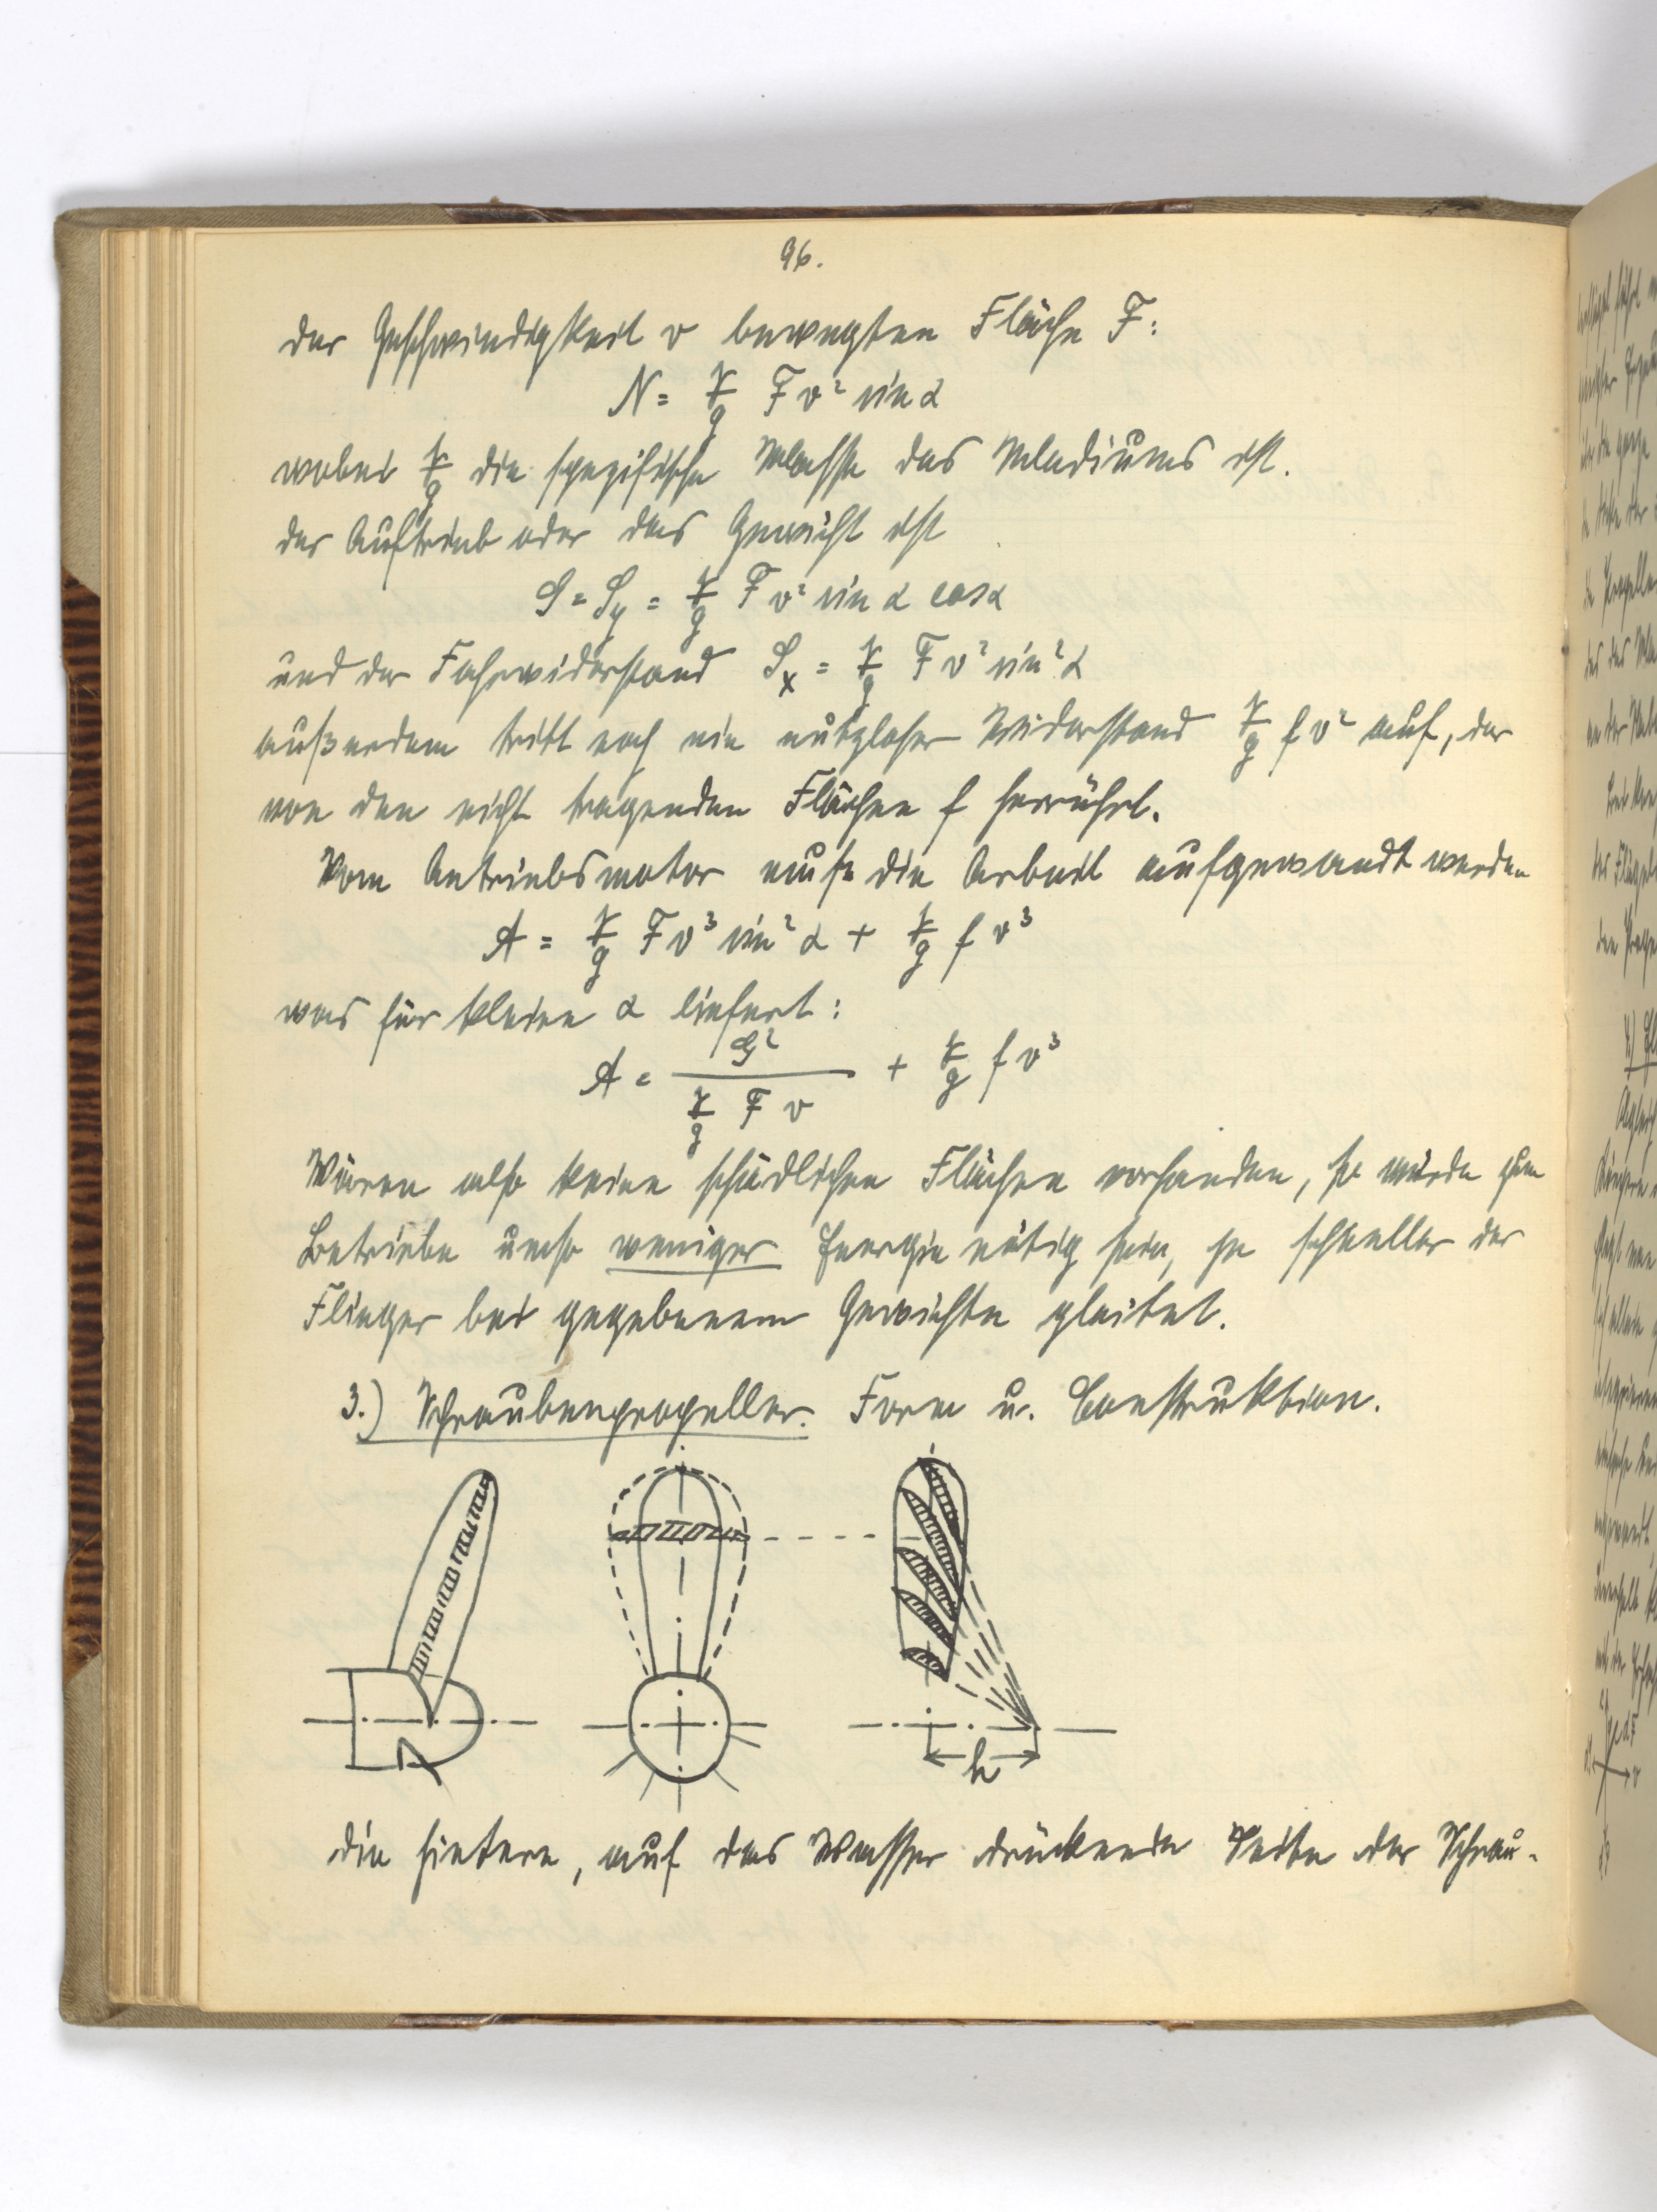 96.
der Geschwindigkeit v bewegten Fläche F:
N = γ/g F v² sin α
wobei γ/g die spezifische Masse des Mediums ist.
der Auftrieb oder das Gewicht ist
G = S_y = γ/g F v² sin α cos α
und der Fahrwiderstand S_x = γ/g F v² sin² α
außerdem tritt noch ein nutzloser Widerstand γ/g f v² auf, der
von den nicht tragenden Flächen f herrührt.
Vom Antriebsmotor muß die Arbeit aufgewandt werden
A = γ/g F v³ sin² α + γ/g f v³
was für kleine α liefert:
A = G² / (γ/g F v) + γ/g f v³
Wären also keine schädlichen Flächen vorhanden, so würde zum
Betriebe umso weniger Energie nötig sein, je schneller der
Flieger bei gegebenem Gewichte gleitet.
3.) Schraubenpropeller. Form u. Construktion.
h
die hintere, auf das Wasser drückende Seite der Schrau-